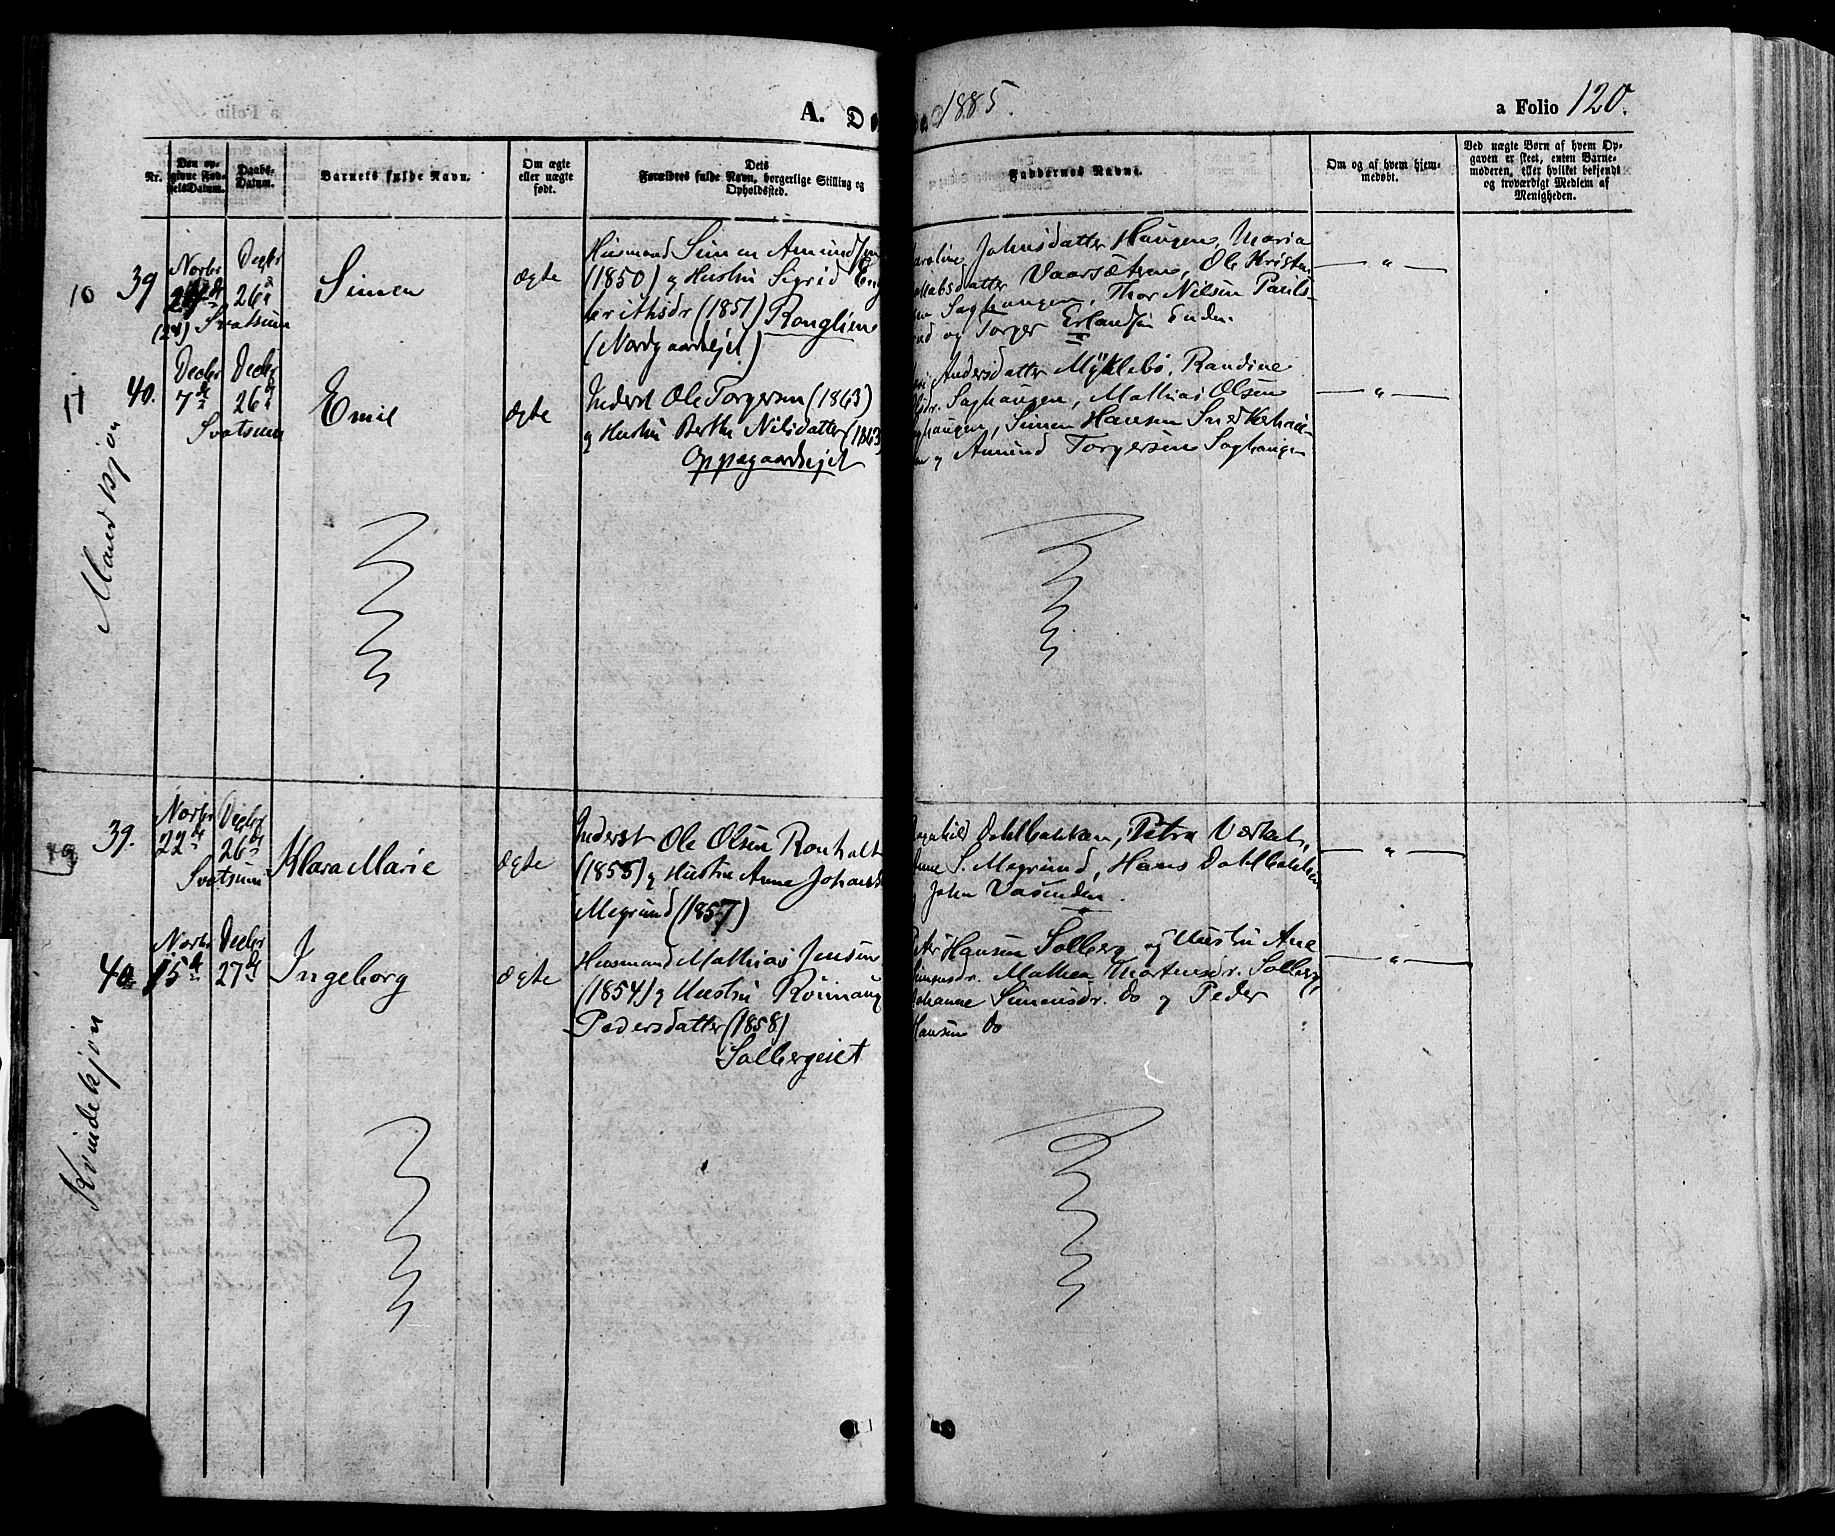 A. Dø
1885.
a Folio 120.
Nr.
Den op-
givne Fød-
selsDatum.
Daabs-
Datum.
Barnets fulde Navn.
Om ægte
eller uægte
født.
Dets
Forældres fulde Navn, borgerlige Stilling og
Opholdssted.
Faddernes Navne.
Om og af hvem hjem-
medøbt.
Ved uægte Børn af hvem Op-
gaven er skeet, enten Barne-
moderen, eller hvilket bekjendt
og troværdigt Medlem af
Menigheden.
Mandkjøn
10 39
Novbr
(24)
Decbr
26
Svatsum
Simen
ægte
Husmand Simen Amundsen
(1850) og Hustru Sigrid Eng
(1851) Ronglien
(Nordgaardsejet)
Johnsdatter Haugen, Maria
Vaarsætren, Ole Kristen
Saghaugen, Thor Nilsen Pauls-
og Torger Erlandsen Enden.
— " —
11 40.
Decbr
7de
Decbr
26de
Svatsum
Emil
ægte
Inderst Ole Torgersen (1863)
og Hustru Berthe Nilsdatter (1863
Oppegaardsejet
Andersdatter Myklebø, Randine
Saghaugen, Mathias Olsen
Simen Hansen
og Amund Torgersen Saghaugen
— " —
Kvindekjøn
39.
Novbr
22de
Decbr
26de
Svatsum
Klara Marie
ægte
Inderst Ole Olsen
(1855) og Hustru Anne Johansd
Megrund (1857)
Dahlbakken, Petra
S. Megrund, Hans Dahlbakken
John Vasenden.
— " —
40.
Novbr
15de
Decbr
27de
Ingeborg
ægte
Husmand Mathias Jensen
(1854) og Hustru Rønnaug
Pedersdatter (1858)
Solbergeiet
Peter Hansen Solberg og Hustru Ane
Simensdr. Mathea Mortensdr. Solberg,
Johanne Simensdr. do og Peder
Hansen do
— " —